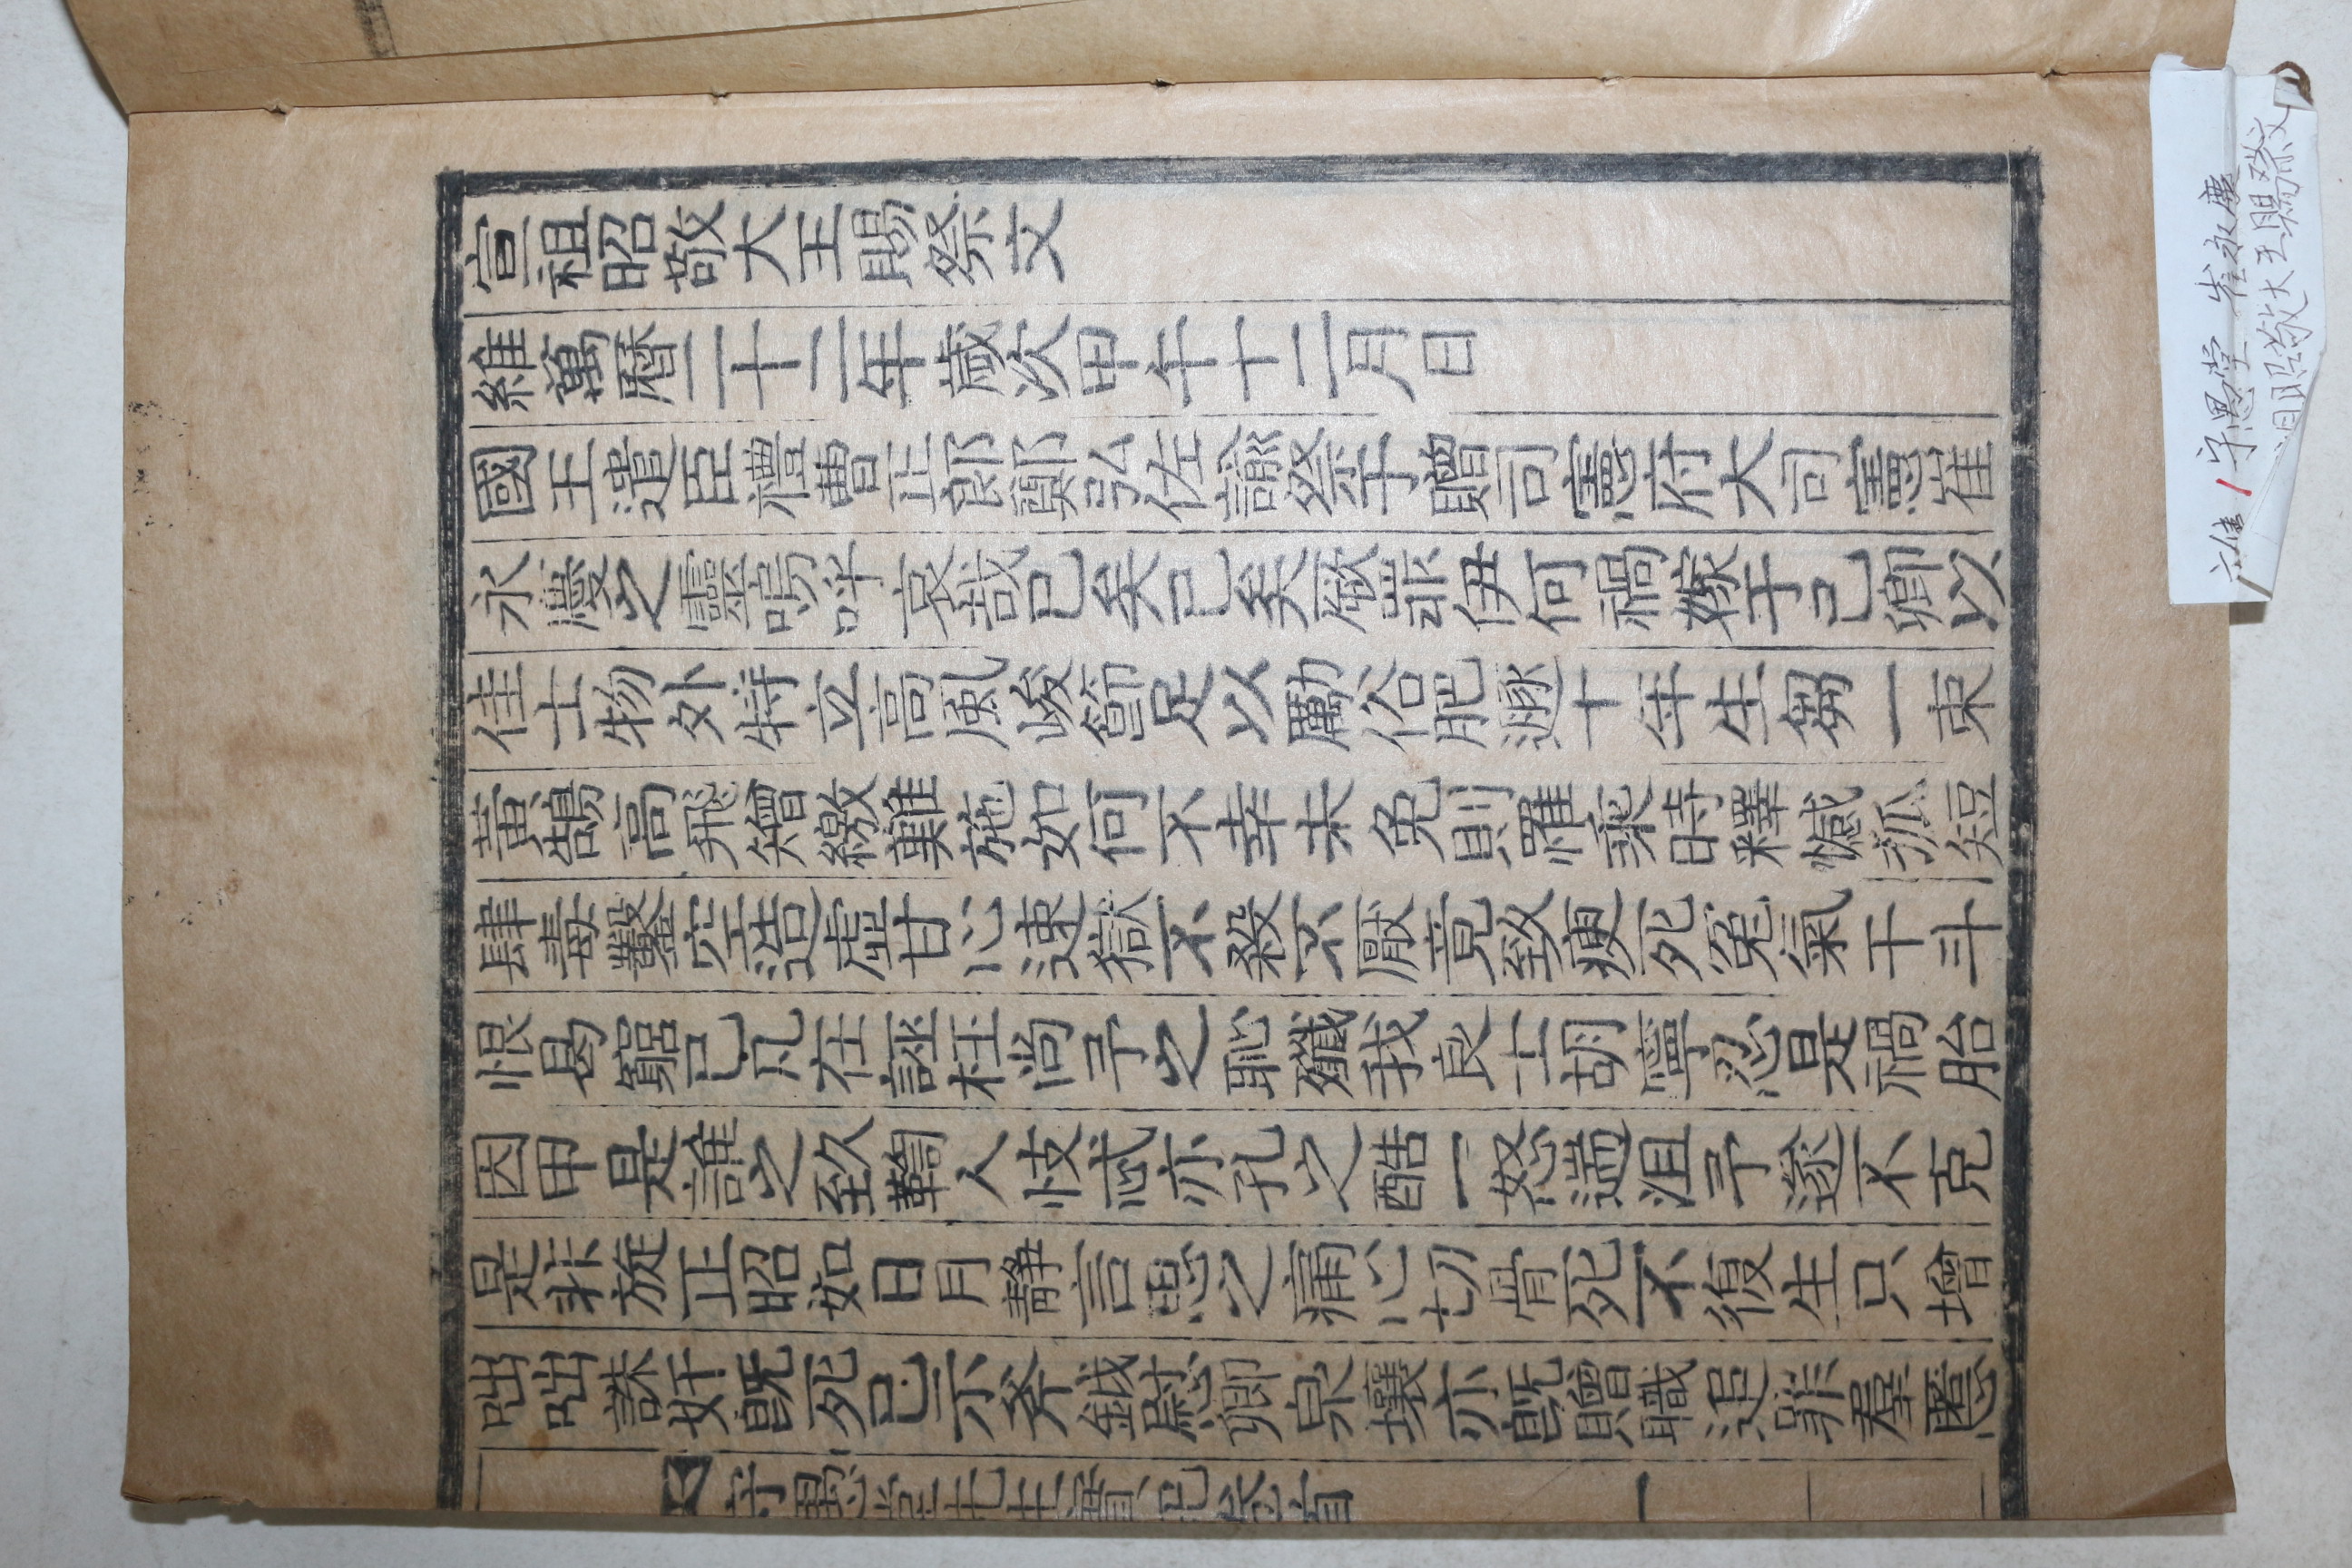 宣祖昭敬大王賜祭文
維萬曆二十二年歲次甲午十二月日
國王遣臣禮曹正郎鄭弘佐諭祭于贈司憲府大司憲崔
永慶之靈嗚呼哀哉已矣已矣厥祟伊何禍嫁于己卿以
佳士物外特立高風峻節足以勵俗肥遯十年生芻一束
黃鵠高飛矰繳難施如何不幸未免則羅乘時釋憾狐短
肆毒鑿空造虛甘心速獄不殺不厭竟致瘐死冤氣干斗
恨曷窮已凡在誣枉尙予之恥殲我良士胡寧忍是禍胎
因甲是誰之致鞫人忮忒亦孔之酷一怒遄沮予遂不克
是非旋正昭如日月靜言思之痛心切骨死不復生只增
咄咄誅奸旣死已示斧鉞慰卿泉壤亦旣贈職追罪羣慝
守愚堂先生實記卷首 一
1 守愚堂 崔永慶
祖昭敬大王賜祭文